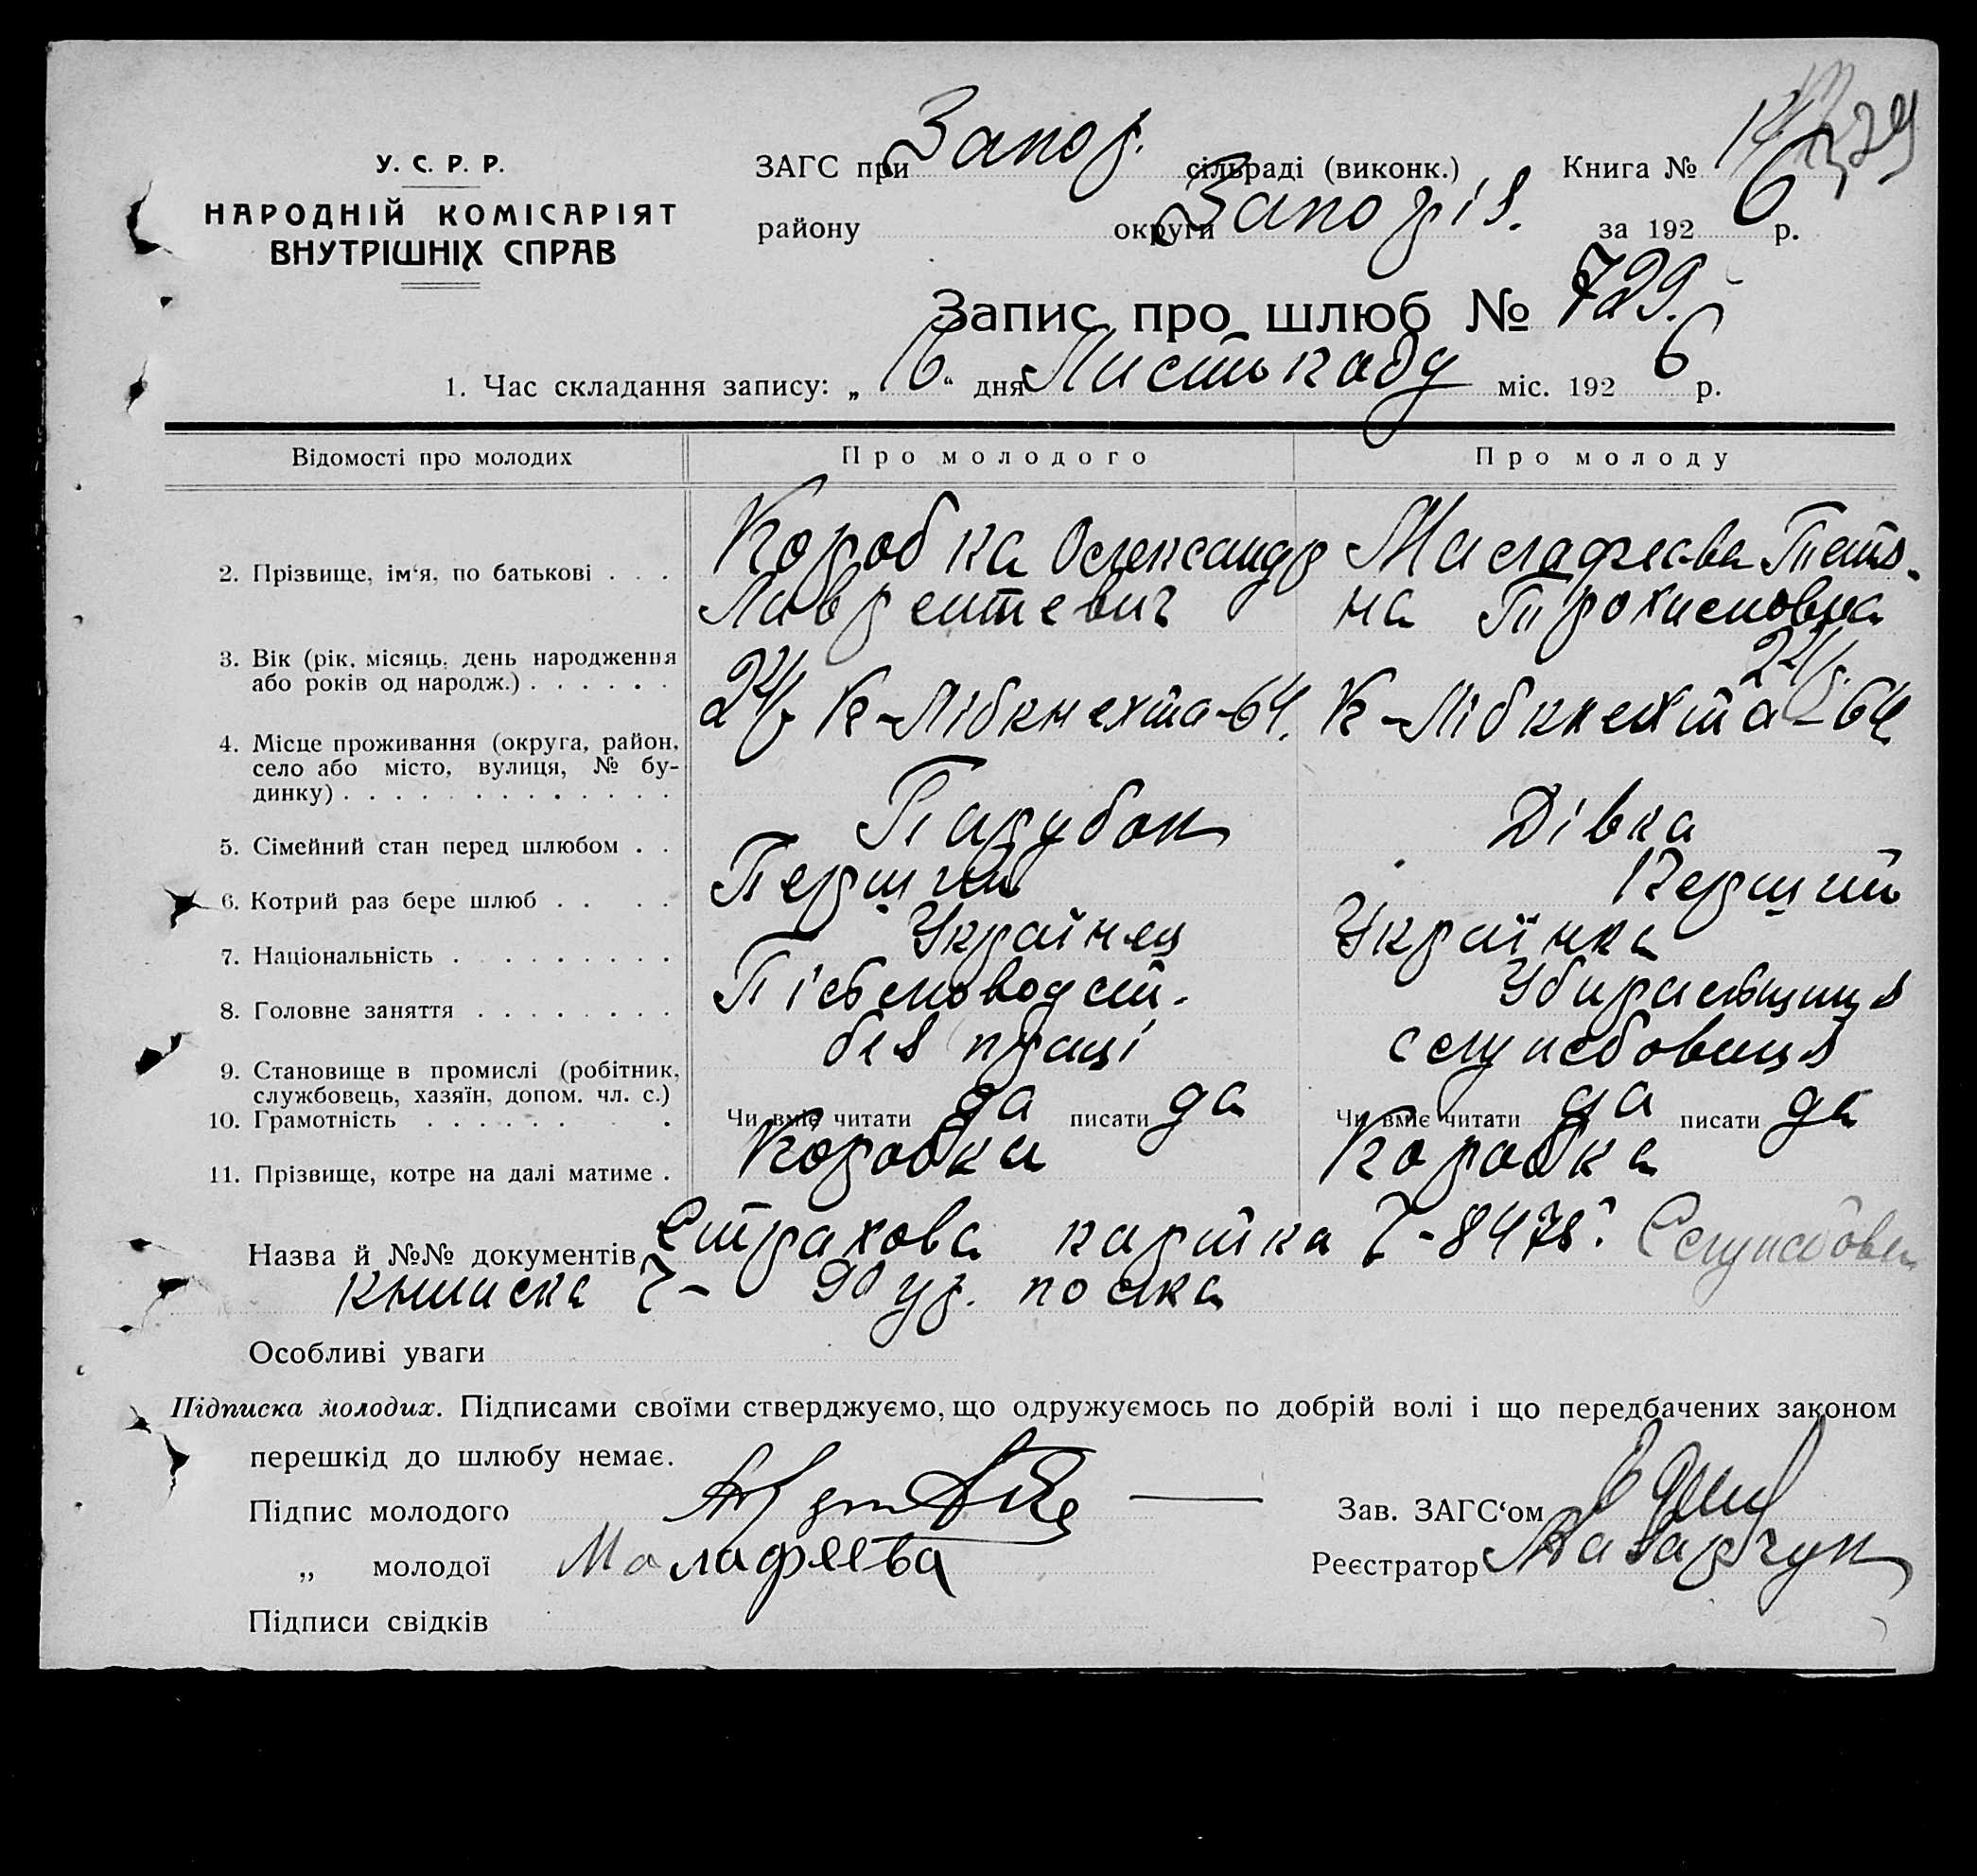 У. С. Р. Р.
НАРОДНІЙ КОМІСАРІЯТ
ВНУТРІШНІХ СПРАВ
ЗАГС при Запор. сільраді (виконк.) Книга №
району округи Запоріз. за 192 6 р.
Запис про шлюб № 729.
1. Час складання запису: „ 16 “ дня Листопаду міс. 192 6 р.
Відомості про молодих Про молодого Про молоду
2. Прізвище, ім‘я, по батькові . . . Коробка Олександр Малафеева Тетя-
Лаврентевич на Трохимовна
3. Вік (рік, місяць, день народження
або років од народж.) . . . . . .
К-Лібкнехта-64. К-Лібкнехта-64
4. Місце проживання (округа, район,
село або місто, вулиця, № бу-
динку) . . . . . . . . . . . . .
5. Сімейний стан перед шлюбом . . Парубок Дівка
6. Котрий раз бере шлюб . . . . Перший Перший
7. Національність . . . . . . . . Українец Українка
8. Головне заняття . . . . . . . .
без праці
9. Становище в промислі (робітник,
службовець, хазяїн, допом. чл. с.)
10. Грамотність . . . . . . . Чи вміє читати да писати да Чи вміє читати да писати да
11. Прізвище, котре на далі матиме . Коробка Коробка
Назва й №№ документів Страхова картка
Особливі уваги
Підписка молодих. Підписами своїми стверджуємо, що одружуємось по добрій волі і що передбачених законом
перешкід до шлюбу немає.
Підпис молодого Зав. ЗАГС‘ом
„ молодої Малафеева Реєстратор
Підписи свідків